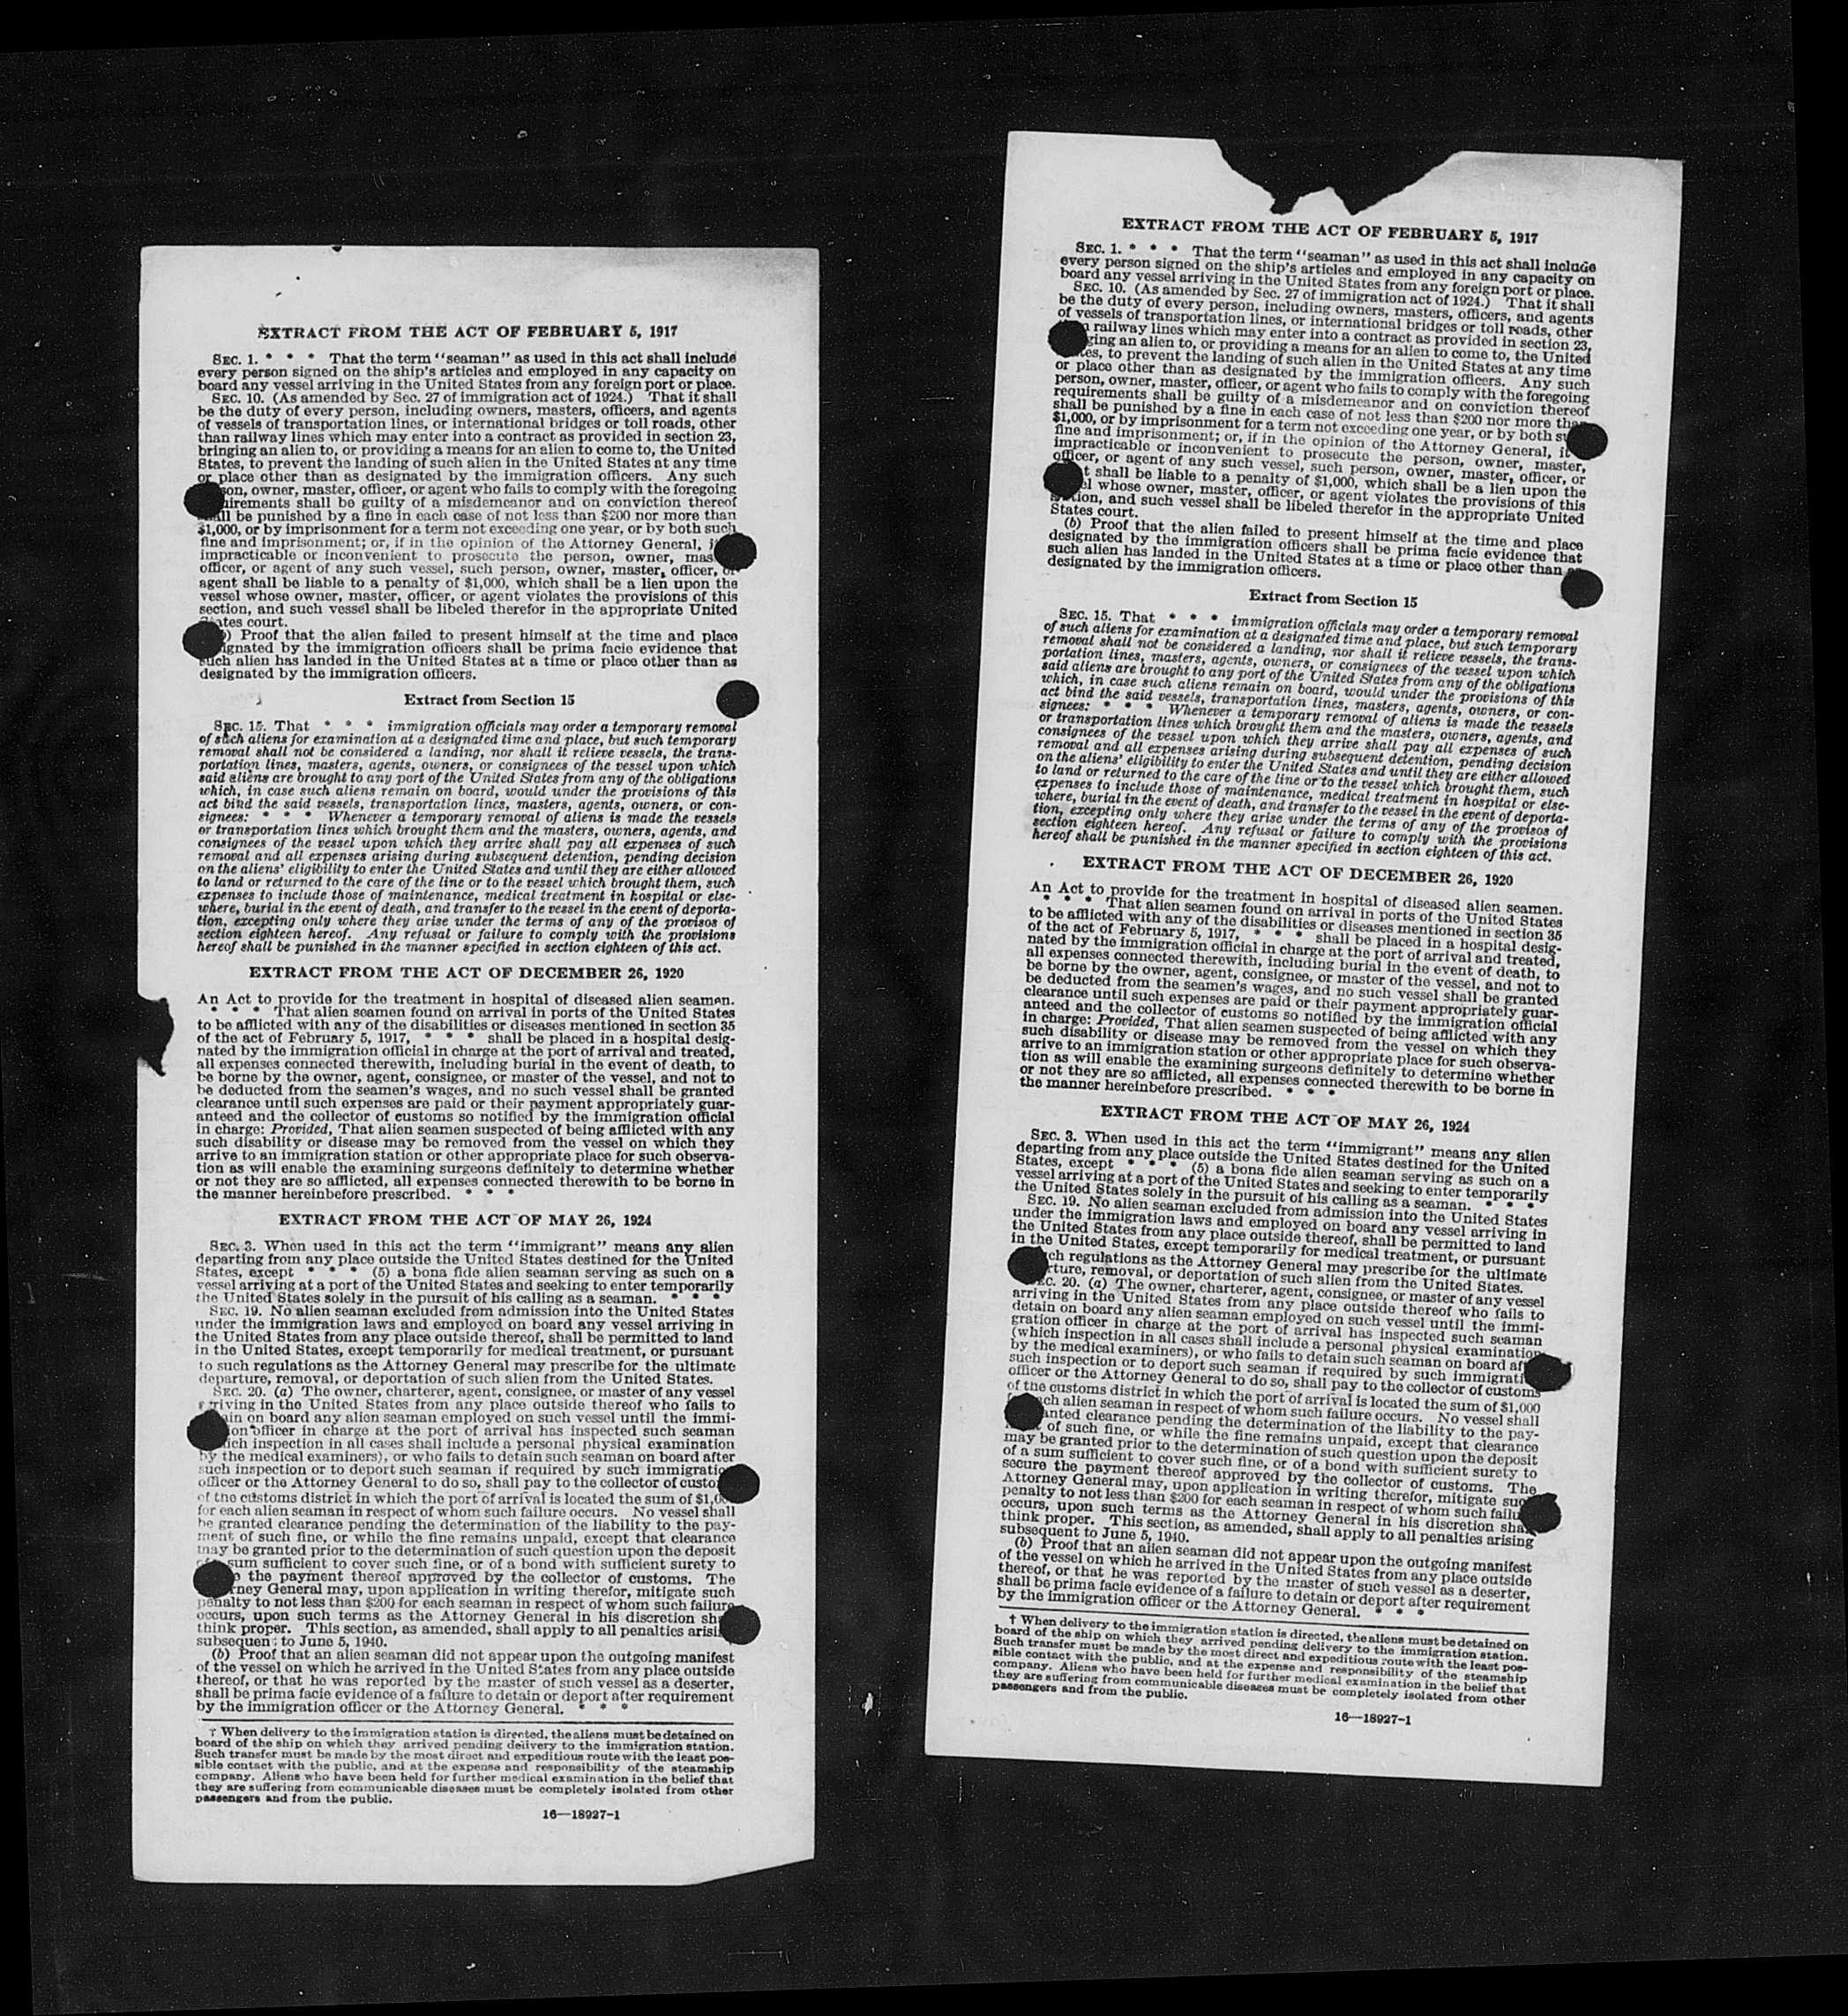 EXTRACT FROM THE ACT OF FEBRUARY 5, 1917
SEC. 1. * * * That the term "seaman" as used in this act shall include
every person signed on the ship's articles and employed in any capacity on
board any vessel arriving in the United States from any foreign port or place.
SEC. 10. (As amended by Sec. 27 of immigration act of 1924.) That it shall
be the duty of every person, including owners, masters, officers, and agents
of vessels of transportation lines, or international bridges or toll roads, other
than railway lines which may enter into a contract as provided in section 23,
bringing an alien to, or providing a means for an alien to come to, the United
States, to prevent the landing of such alien in the United States at any time
or place other than as designated by the immigration officers. Any such
son, owner, master, officer, or agent who fails to comply with the foregoing
uirements shall be guilty of a misdemeanor and on conviction thereof
shall be punished by a fine in each case of not less than $200 nor more than
$1,000, or by imprisonment for a term not exceeding one year, or by both such
fine and imprisonment; or, if in the opinion of the Attorney General, i
impracticable or inconvenient to prosecute the person, owner, mas
officer, or agent of any such vessel, such person, owner, master, officer, or
agent shall be liable to a penalty of $1,000, which shall be a lien upon the
vessel whose owner, master, officer, or agent violates the provisions of this
section, and such vessel shall be libeled therefor in the appropriate United
States court.
) Proof that the alien failed to present himself at the time and place
ignated by the immigration officers shall be prima facie evidence that
such alien has landed in the United States at a time or place other than as
designated by the immigration officers.
Extract from Section 15
SEC. 15. That * * * immigration officials may order a temporary removal
of such aliens for examination at a designated time and place, but such temporary
removal shall not be considered a landing, nor shall it relieve vessels, the trans-
portation lines, masters, agents, owners, or consignees of the vessel upon which
said aliens are brought to any port of the United States from any of the obligations
which, in case such aliens remain on board, would under the provisions of this
act bind the said vessels, transportation lines, masters, agents, owners, or con-
signees: * * * Whenever a temporary removal of aliens is made the vessels
or transportation lines which brought them and the masters, owners, agents, and
consignees of the vessel upon which they arrive shall pay all expenses of such
removal and all expenses arising during subsequent detention, pending decision
on the aliens' eligibility to enter the United States and until they are either allowed
to land or returned to the care of the line or to the vessel which brought them, such
expenses to include those of maintenance, medical treatment in hospital or else-
where, burial in the event of death, and transfer to the vessel in the event of deporta-
tion, excepting only where they arise under the terms of any of the provisos of
section eighteen hereof. Any refusal or failure to comply with the provisions
hereof shall be punished in the manner specified in section eighteen of this act.
EXTRACT FROM THE ACT OF DECEMBER 26, 1920
An Act to provide for the treatment in hospital of diseased alien seamen.
* * * That alien seamen found on arrival in ports of the United States
to be afflicted with any of the disabilities or diseases mentioned in section 35
of the act of February 5, 1917, * * * shall be placed in a hospital desig-
nated by the immigration official in charge at the port of arrival and treated,
all expenses connected therewith, including burial in the event of death, to
be borne by the owner, agent, consignee, or master of the vessel, and not to
be deducted from the seamen's wages, and no such vessel shall be granted
clearance until such expenses are paid or their payment appropriately guar-
anteed and the collector of customs so notified by the immigration official
in charge: Provided, That alien seamen suspected of being afflicted with any
such disability or disease may be removed from the vessel on which they
arrive to an immigration station or other appropriate place for such observa-
tion as will enable the examining surgeons definitely to determine whether
or not they are so afflicted, all expenses connected therewith to be borne in
the manner hereinbefore prescribed. * * *
EXTRACT FROM THE ACT OF MAY 26, 1924
SEC. 3. When used in this act the term "immigrant" means any alien
departing from any place outside the United States destined for the United
States, except * * * (5) a bona fide alien seaman serving as such on a
vessel arriving at a port of the United States and seeking to enter temporarily
the United States solely in the pursuit of his calling as a seaman. * * *
SEC. 19. No alien seaman excluded from admission into the United States
under the immigration laws and employed on board any vessel arriving in
the United States from any place outside thereof, shall be permitted to land
in the United States, except temporarily for medical treatment, or pursuant
to such regulations as the Attorney General may prescribe for the ultimate
departure, removal, or deportation of such alien from the United States.
SEC. 20. (a) The owner, charterer, agent, consignee, or master of any vessel
arriving in the United States from any place outside thereof who fails to
ain on board any alien seaman employed on such vessel until the immi-
ion officer in charge at the port of arrival has inspected such seaman
ich inspection in all cases shall include a personal physical examination
by the medical examiners), or who fails to detain such seaman on board after
such inspection or to deport such seaman if required by such immigratio
officer or the Attorney General to do so, shall pay to the collector of custo
of the customs district in which the port of arrival is located the sum of $1,0
for each alien seaman in respect of whom such failure occurs. No vessel shall
be granted clearance pending the determination of the liability to the pay-
ment of such fine, or while the fine remains unpaid, except that clearance
may be granted prior to the determination of such question upon the deposit
sum sufficient to cover such fine, or of a bond with sufficient surety to
the payment thereof approved by the collector of customs. The
rney General may, upon application in writing therefor, mitigate such
penalty to not less than $200 for each seaman in respect of whom such failure
occurs, upon such terms as the Attorney General in his discretion sh
think proper. This section, as amended, shall apply to all penalties arisi
subsequent to June 5, 1940.
(b) Proof that an alien seaman did not appear upon the outgoing manifest
of the vessel on which he arrived in the United States from any place outside
thereof, or that he was reported by the master of such vessel as a deserter,
shall be prima facie evidence of a failure to detain or deport after requirement
by the immigration officer or the Attorney General. * * *
† When delivery to the immigration station is directed, the aliens must be detained on
board of the ship on which they arrived pending delivery to the immigration station.
Such transfer must be made by the most direct and expeditious route with the least pos-
sible contact with the public, and at the expense and responsibility of the steamship
company. Aliens who have been held for further medical examination in the belief that
they are suffering from communicable diseases must be completely isolated from other
passengers and from the public.
16—18927-1
EXTRACT FROM THE ACT OF FEBRUARY 5, 1917
SEC. 1. * * * That the term "seaman" as used in this act shall include
every person signed on the ship's articles and employed in any capacity on
board any vessel arriving in the United States from any foreign port or place.
SEC. 10. (As amended by Sec. 27 of immigration act of 1924.) That it shall
be the duty of every person, including owners, masters, officers, and agents
of vessels of transportation lines, or international bridges or toll roads, other
railway lines which may enter into a contract as provided in section 23,
ging an alien to, or providing a means for an alien to come to, the United
tes, to prevent the landing of such alien in the United States at any time
or place other than as designated by the immigration officers. Any such
person, owner, master, officer, or agent who fails to comply with the foregoing
requirements shall be guilty of a misdemeanor and on conviction thereof
shall be punished by a fine in each case of not less than $200 nor more than
$1,000, or by imprisonment for a term not exceeding one year, or by both su
fine and imprisonment; or, if in the opinion of the Attorney General, it
impracticable or inconvenient to prosecute the person, owner, master,
officer, or agent of any such vessel, such person, owner, master, officer, or
t shall be liable to a penalty of $1,000, which shall be a lien upon the
el whose owner, master, officer, or agent violates the provisions of this
section, and such vessel shall be libeled therefor in the appropriate United
States court.
(b) Proof that the alien failed to present himself at the time and place
designated by the immigration officers shall be prima facie evidence that
such alien has landed in the United States at a time or place other than as
designated by the immigration officers.
Extract from Section 15
SEC. 15. That * * * immigration officials may order a temporary removal
of such aliens for examination at a designated time and place, but such temporary
removal shall not be considered a landing, nor shall it relieve vessels, the trans-
portation lines, masters, agents, owners, or consignees of the vessel upon which
said aliens are brought to any port of the United States from any of the obligations
which, in case such aliens remain on board, would under the provisions of this
act bind the said vessels, transportation lines, masters, agents, owners, or con-
signees: * * * Whenever a temporary removal of aliens is made the vessels
or transportation lines which brought them and the masters, owners, agents, and
consignees of the vessel upon which they arrive shall pay all expenses of such
removal and all expenses arising during subsequent detention, pending decision
on the aliens' eligibility to enter the United States and until they are either allowed
to land or returned to the care of the line or to the vessel which brought them, such
expenses to include those of maintenance, medical treatment in hospital or else-
where, burial in the event of death, and transfer to the vessel in the event of deporta-
tion, excepting only where they arise under the terms of any of the provisos of
section eighteen hereof. Any refusal or failure to comply with the provisions
hereof shall be punished in the manner specified in section eighteen of this act.
EXTRACT FROM THE ACT OF DECEMBER 26, 1920
An Act to provide for the treatment in hospital of diseased alien seamen.
* * * That alien seamen found on arrival in ports of the United States
to be afflicted with any of the disabilities or diseases mentioned in section 35
of the act of February 5, 1917, * * * shall be placed in a hospital desig-
nated by the immigration official in charge at the port of arrival and treated,
all expenses connected therewith, including burial in the event of death, to
be borne by the owner, agent, consignee, or master of the vessel, and not to
be deducted from the seamen's wages, and no such vessel shall be granted
clearance until such expenses are paid or their payment appropriately guar-
anteed and the collector of customs so notified by the immigration official
in charge: Provided, That alien seamen suspected of being afflicted with any
such disability or disease may be removed from the vessel on which they
arrive to an immigration station or other appropriate place for such observa-
tion as will enable the examining surgeons definitely to determine whether
or not they are so afflicted, all expenses connected therewith to be borne in
the manner hereinbefore prescribed. * * *
EXTRACT FROM THE ACT OF MAY 26, 1924
SEC. 3. When used in this act the term "immigrant" means any alien
departing from any place outside the United States destined for the United
States, except * * * (5) a bona fide alien seaman serving as such on a
vessel arriving at a port of the United States and seeking to enter temporarily
the United States solely in the pursuit of his calling as a seaman. * * *
SEC. 19. No alien seaman excluded from admission into the United States
under the immigration laws and employed on board any vessel arriving in
the United States from any place outside thereof, shall be permitted to land
in the United States, except temporarily for medical treatment, or pursuant
ch regulations as the Attorney General may prescribe for the ultimate
rture, removal, or deportation of such alien from the United States.
EC. 20. (a) The owner, charterer, agent, consignee, or master of any vessel
arriving in the United States from any place outside thereof who fails to
detain on board any alien seaman employed on such vessel until the immi-
gration officer in charge at the port of arrival has inspected such seaman
(which inspection in all cases shall include a personal physical examination
by the medical examiners), or who fails to detain such seaman on board aft
such inspection or to deport such seaman if required by such immigrati
officer or the Attorney General to do so, shall pay to the collector of customs
of the customs district in which the port of arrival is located the sum of $1,000
ch alien seaman in respect of whom such failure occurs. No vessel shall
anted clearance pending the determination of the liability to the pay-
of such fine, or while the fine remains unpaid, except that clearance
may be granted prior to the determination of such question upon the deposit
of a sum sufficient to cover such fine, or of a bond with sufficient surety to
secure the payment thereof approved by the collector of customs. The
Attorney General may, upon application in writing therefor, mitigate such
penalty to not less than $200 for each seaman in respect of whom such failu
occurs, upon such terms as the Attorney General in his discretion sha
think proper. This section, as amended, shall apply to all penalties arising
subsequent to June 5, 1940.
(b) Proof that an alien seaman did not appear upon the outgoing manifest
of the vessel on which he arrived in the United States from any place outside
thereof, or that he was reported by the master of such vessel as a deserter,
shall be prima facie evidence of a failure to detain or deport after requirement
by the immigration officer or the Attorney General. * * *
† When delivery to the immigration station is directed, the aliens must be detained on
board of the ship on which they arrived pending delivery to the immigration station.
Such transfer must be made by the most direct and expeditious route with the least pos-
sible contact with the public, and at the expense and responsibility of the steamship
company. Aliens who have been held for further medical examination in the belief that
they are suffering from communicable diseases must be completely isolated from other
passengers and from the public.
16—18927-1